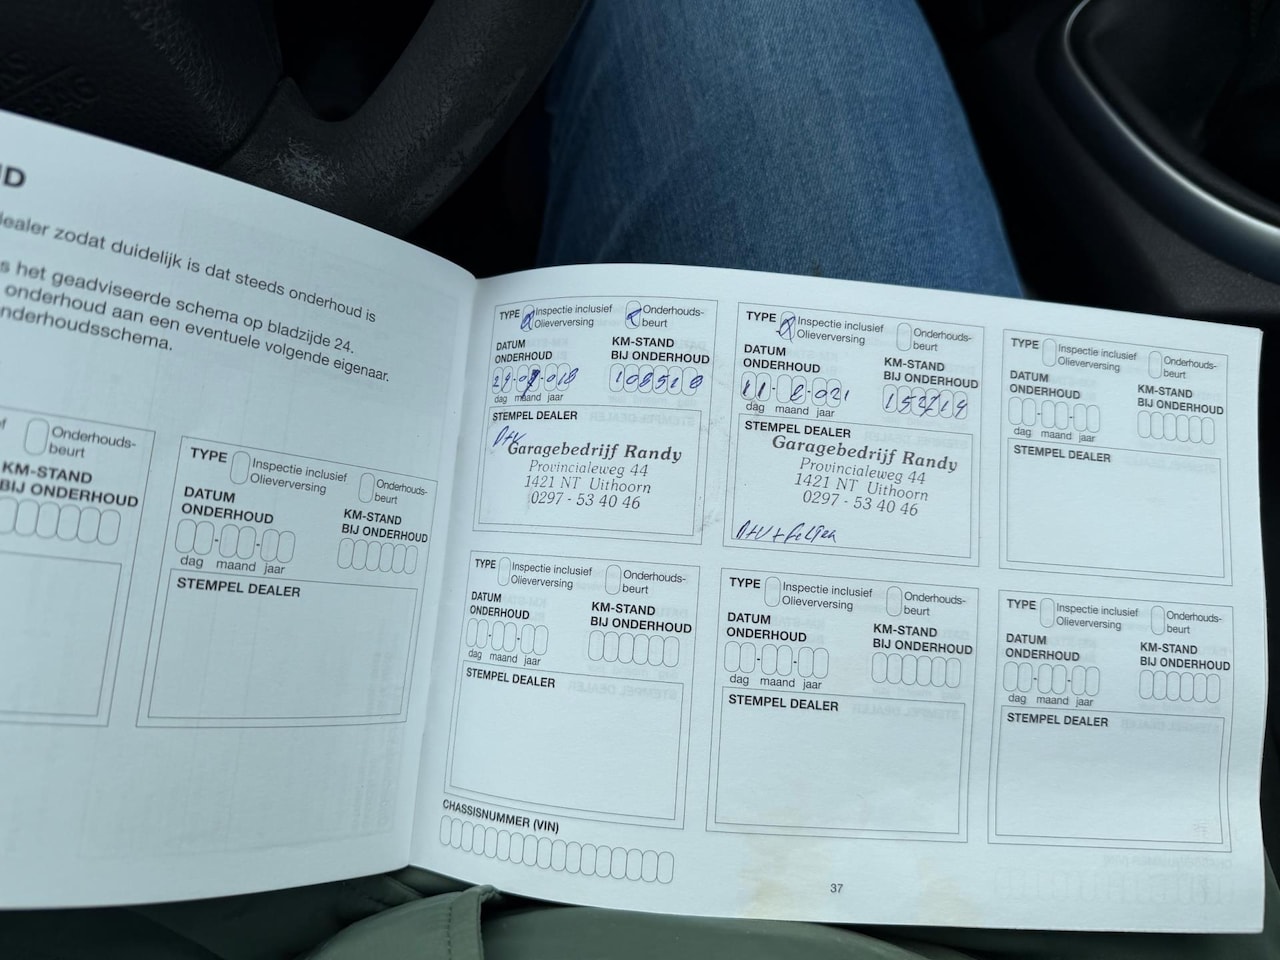 ID
dealer zodat duidelijk is dat steeds onderhoud is
s het geadviseerde schema op bladzijde 24.
onderhoud aan een eventuele volgende eigenaar.
nderhoudsschema.
Onderhouds-
beurt
KM-STAND
BIJ ONDERHOUD
TYPE Inspectie inclusief Onderhouds-
Olieverversing beurt
DATUM KM-STAND
ONDERHOUD BIJ ONDERHOUD
dag maand jaar
STEMPEL DEALER
TYPE Inspectie inclusief Onderhouds-
Olieverversing beurt
DATUM KM-STAND
ONDERHOUD BIJ ONDERHOUD
dag maand jaar
STEMPEL DEALER
Garagebedrijf Randy
Provincialeweg 44
1421 NT Uithoorn
0297 - 53 40 46
TYPE Inspectie inclusief Onderhouds-
Olieverversing beurt
DATUM KM-STAND
ONDERHOUD BIJ ONDERHOUD
dag maand jaar
STEMPEL DEALER
Garagebedrijf Randy
Provincialeweg 44
1421 NT Uithoorn
0297 - 53 40 46
TYPE Inspectie inclusief Onderhouds-
Olieverversing beurt
DATUM KM-STAND
ONDERHOUD BIJ ONDERHOUD
dag maand jaar
STEMPEL DEALER
TYPE Inspectie inclusief Onderhouds-
Olieverversing beurt
DATUM KM-STAND
ONDERHOUD BIJ ONDERHOUD
dag maand jaar
STEMPEL DEALER
TYPE Inspectie inclusief Onderhouds-
Olieverversing beurt
DATUM KM-STAND
ONDERHOUD BIJ ONDERHOUD
dag maand jaar
STEMPEL DEALER
TYPE Inspectie inclusief Onderhouds-
Olieverversing beurt
DATUM KM-STAND
ONDERHOUD BIJ ONDERHOUD
dag maand jaar
STEMPEL DEALER
CHASSISNUMMER (VIN)
37